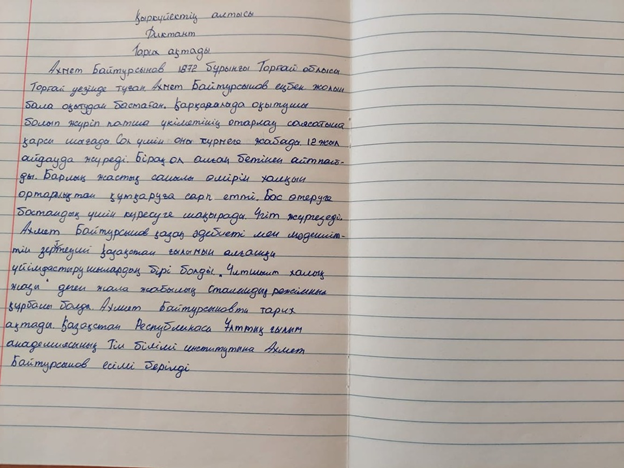 Қыркүйектің алтысы
Диктант
Тарих ақтады
Ахмет Байтурсынов 1872 бұрынғы Торғай облысы
Торғай уезінде туған Ахмет Байтурсынов еңбек жолын
бала оқытудан бастаған. Қарқаралыда оқытушы
болып жүріп патша үкіметінің отарлау саясатына
қарсы шығады Сол үшін оны түрмеге жабады. 12 жыл
айдауда жүреді. Бірақ ол алған бетінен айтпай-
ды. Барлық жастық саналы өмірін халқын
ортарлықтан құтқаруға сарп етті. Бас көтеруге
бостандық үшін күресуге шақырады. Үгіт жүргізеді.
Ахмет Байтурсынов қазақ әдебиеті мен мәдениет-
тің зерттеуші қазақстан ғылымын алғашқы
ұйымдастырушылардың бірі болды. "Ұлтшыл халық
жауы" деген жала жабылып Сталиндық режимнің
құрбаны болды Ахмет Байтурсыновты тарих
ақтады Қазақстан Республикасы Ұлттық ғылым
академиясының Тіл білімі институтына Ахмет
Байтурсынов есімі берілді